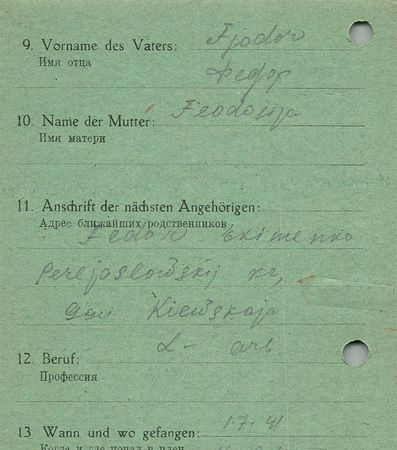 9. Vorname des Vaters: Fjodor
Имя отца Федор
10. Name der Mutter: Feodosija
Имя матери
11. Anschrift der nächsten Angehörigen:
Адрес ближайших родственников
Fedor Ekimenko
Perejaslowskij
Kiewskaja
12. Beruf: L- arb
Профессия
13 Wann und wo gefangen: 1.7.41
Когда и где попал в плен